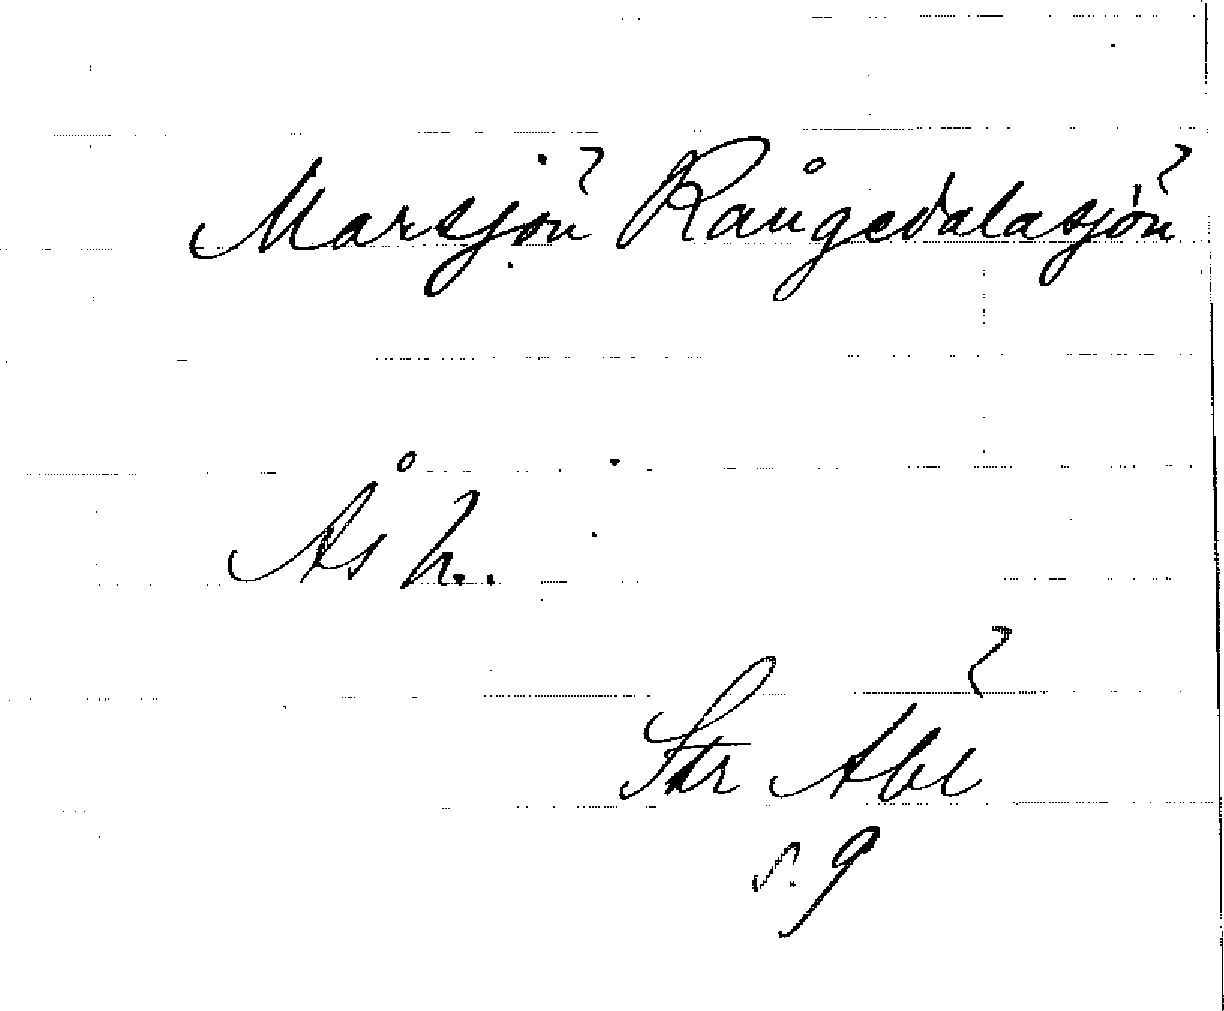 Marsjön Rångedalasjön
Ås h.
Str Abl
s. 9